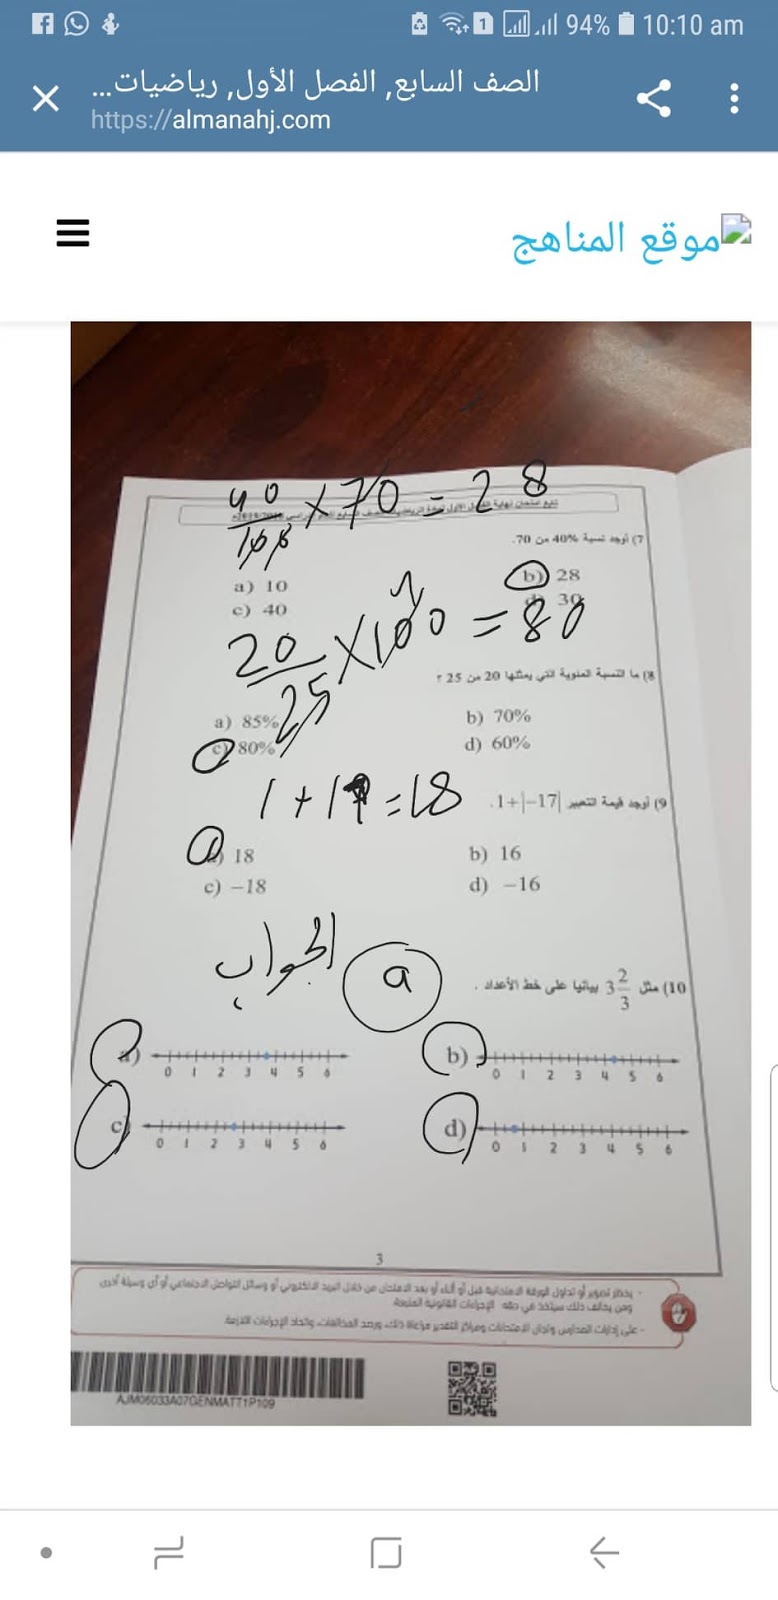 94% 10:10 am
الصف السابع, الفصل الأول, رياضيات...
https://almanahj.com
موقع المناهج
40/100 × 70 = 28
7) أوجد نسبة 40% من 70.
a) 10 b) 28
c) 40 d) 30
20/25 × 100 = 80
8) ما النسبة المئوية التي يمثلها 20 من 25 ؟
a) 85% b) 70%
c) 80% d) 60%
1 + 17 = 18
9) أوجد قيمة التعبير |−17|+1.
a) 18 b) 16
c) −18 d) −16
الجواب a
10) مثل 3 2/3 بيانيا على خط الأعداد .
a) 0 1 2 3 4 5 6
b) 0 1 2 3 4 5 6
c) 0 1 2 3 4 5 6
d) 0 1 2 3 4 5 6
3
- يحظر تصوير أو تداول الورقة الامتحانية قبل أو أثناء أو بعد الامتحان من خلال البريد الالكتروني أو وسائل التواصل الاجتماعي أو أي وسيلة أخرى
ومن يخالف ذلك سيتخذ في حقه الإجراءات القانونية المتبعة
- على إدارات المدارس ولجان الامتحانات ومراكز التقدير مراعاة ذلك، ورصد المخالفات، واتخاذ الإجراءات اللازمة
AJM06033A07GENMATT1P109